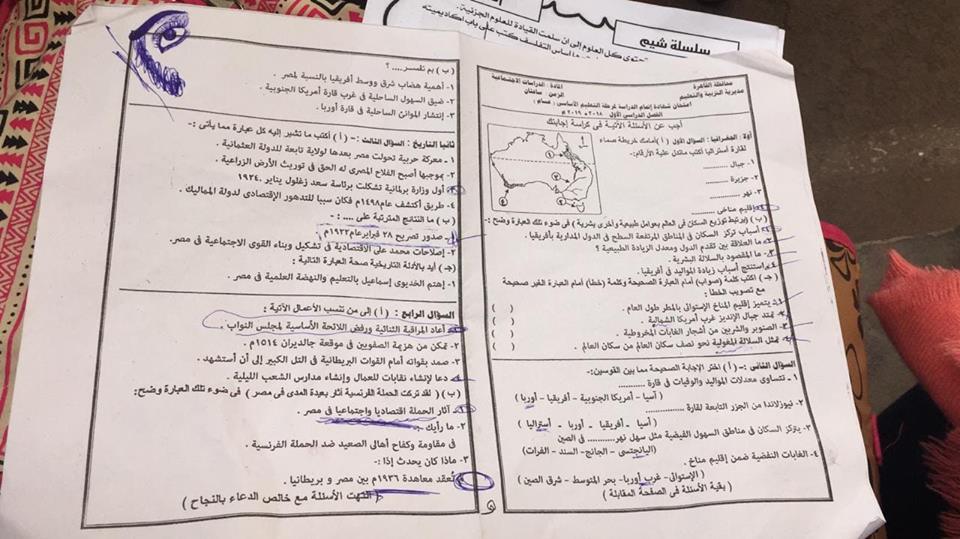 سلسلة شيم
تحتوى كل العلوم إلى ان سلمت القيادة للعلوم الجزئية.
محافظة القاهرة
مديرية التربية والتعليم
المادة: الدراسات الاجتماعية
الزمن: ساعتان
امتحان شهادة إتمام الدراسة لمرحلة التعليم الأساسى: عــام:
الفصل الدراسى الأول ٢٠١٨ / ٢٠١٩م
أجب عن الأسئلة الآتية فى كراسة إجابتك
أولا: الجغرافيا: السؤال الأول (أ) أمامك خريطة صماء
لقارة أستراليا أكتب ماتدل علية الأرقام:
١- جبال ..........
٢- جزيرة ..........
٣- نهر ..........
٤- إقليم مناخى ..........
(ب) (يرتبط توزيع السكان فى العالم بعوامل طبيعية وأخرى بشرية) فى ضوء تلك العبارة وضح:-
١- أسباب تركز السكان فى المناطق المرتفعة السطح فى الدول المدارية بأفريقيا.
٢- ما العلاقة بين تقدم الدول ومعدل الزيادة الطبيعية؟
٣- ما المقصود بالسلالة البشرية.
٤- إستنتج أسباب زيادة المواليد فى أفريقيا.
(جـ) اكتب كلمة (صواب) أمام العبارة الصحيحة وكلمة (خطأ) أمام العبارة الغير صحيحة
مع تصويب الخطأ:
١- يتميز إقليم المناخ الإستوائى بالمطر طول العام. ( )
٢- تمتد جبال الإنديز غرب أمريكا الشمالية. ( )
٣- الصنوبر والشربين من أشجار الغابات المخروطية. ( )
٤- تمثل السلالة المغولية نحو نصف سكان العالم من سكان العالم. ( )
السؤال الثانى: - (أ) اختر الإجابة الصحيحة مما بين القوسين:
١- تتساوى معدلات المواليد والوفيات فى قارة ..........
(آسيا - أمريكا الجنوبية - أفريقيا - أوربا)
٢- نيوزلاندا من الجزر التابعة لقارة ..........
(آسيا - أفريقيا - أوربا - أستراليا)
٣- يتركز السكان فى مناطق السهول الفيضية مثل سهل نهر .......... فى الصين
(اليانجتسى - الجانج - السند - الفرات)
٤- الغابات النفضية ضمن إقليم مناخ ..........
(الإستوائى - غرب أوربا - بحر المتوسط - شرق الصين)
(بقية الأسئلة فى الصفحة المقابلة)
(ب) بم تفسر....؟
١- أهمية هضاب شرق ووسط أفريقيا بالنسبة لمصر.
٢- ضيق السهول الساحلية فى غرب قارة أمريكا الجنوبية.
٣- إنتشار الموانئ الساحلية فى قارة أوربا.
ثانيا التاريخ: السؤال الثالث: - (أ) أكتب ما تشير إليه كل عبارة مما يأتى:-
١- معركة حربية تحولت مصر بعدها لولاية تابعة للدولة العثمانية.
٢- بموجبها أصبح الفلاح المصرى له الحق فى توريث الأرض الزراعية.
٣- أول وزارة برلمانية تشكلت برئاسة سعد زغلول يناير ١٩٢٤.
٤- طريق أكتشف عام ١٤٩٨م فكان سببا للتدهور الإقتصادى لدولة المماليك.
(ب) ما النتائج المترتبة على .... :-
١- صدور تصريح ٢٨ فبراير عام ١٩٢٢م
٢- إصلاحات محمد على الاقتصادية فى تشكيل وبناء القوى الاجتماعية فى مصر.
(جـ) أيد بالأدلة التاريخية صحة العبارة التالية:
١- إهتم الخديوى إسماعيل بالتعليم والنهضة العلمية فى مصر.
السؤال الرابع: (أ) إلى من تنتسب الأعمال الآتية:
١- أعاد المراقبة الثنائية ورفض اللائحة الأساسية لمجلس النواب.
٢- تمكن من هزيمة الصفويين فى موقعة جالديران ١٥١٤م.
٣- صمد بقواته أمام القوات البريطانية فى التل الكبير إلى أن أستشهد.
٤- دعا لإنشاء نقابات للعمال وإنشاء مدارس الشعب الليلية.
(ب) (لقد تركت الحملة الفرنسية آثار بعيدة المدى فى مصر) فى ضوء تلك العبارة وضح:
١- آثار الحملة اقتصاديا واجتماعيا فى مصر.
٢- ما رأيك:-
فى مقاومة وكفاح أهالى الصعيد ضد الحملة الفرنسية.
٣- ماذا كان يحدث إذا:-
لم تُعقد معاهدة ١٩٣٦م بين مصر و بريطانيا.
(انتهت الأسئلة مع خالص الدعاء بالنجاح)